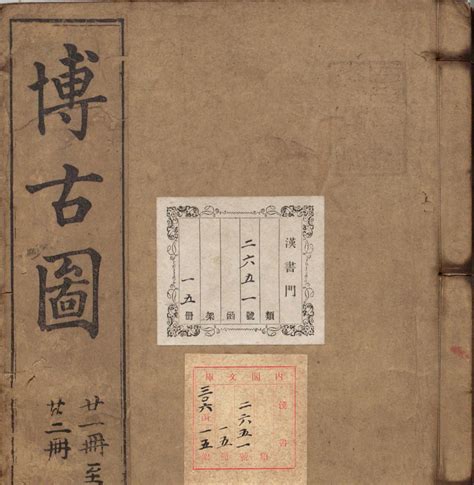 博古圖
廿一冊至
廿二冊
漢書門
類
二六五一號
函
架
一五冊
內閣文庫
漢書
二六五一
一五
三〇六
一五